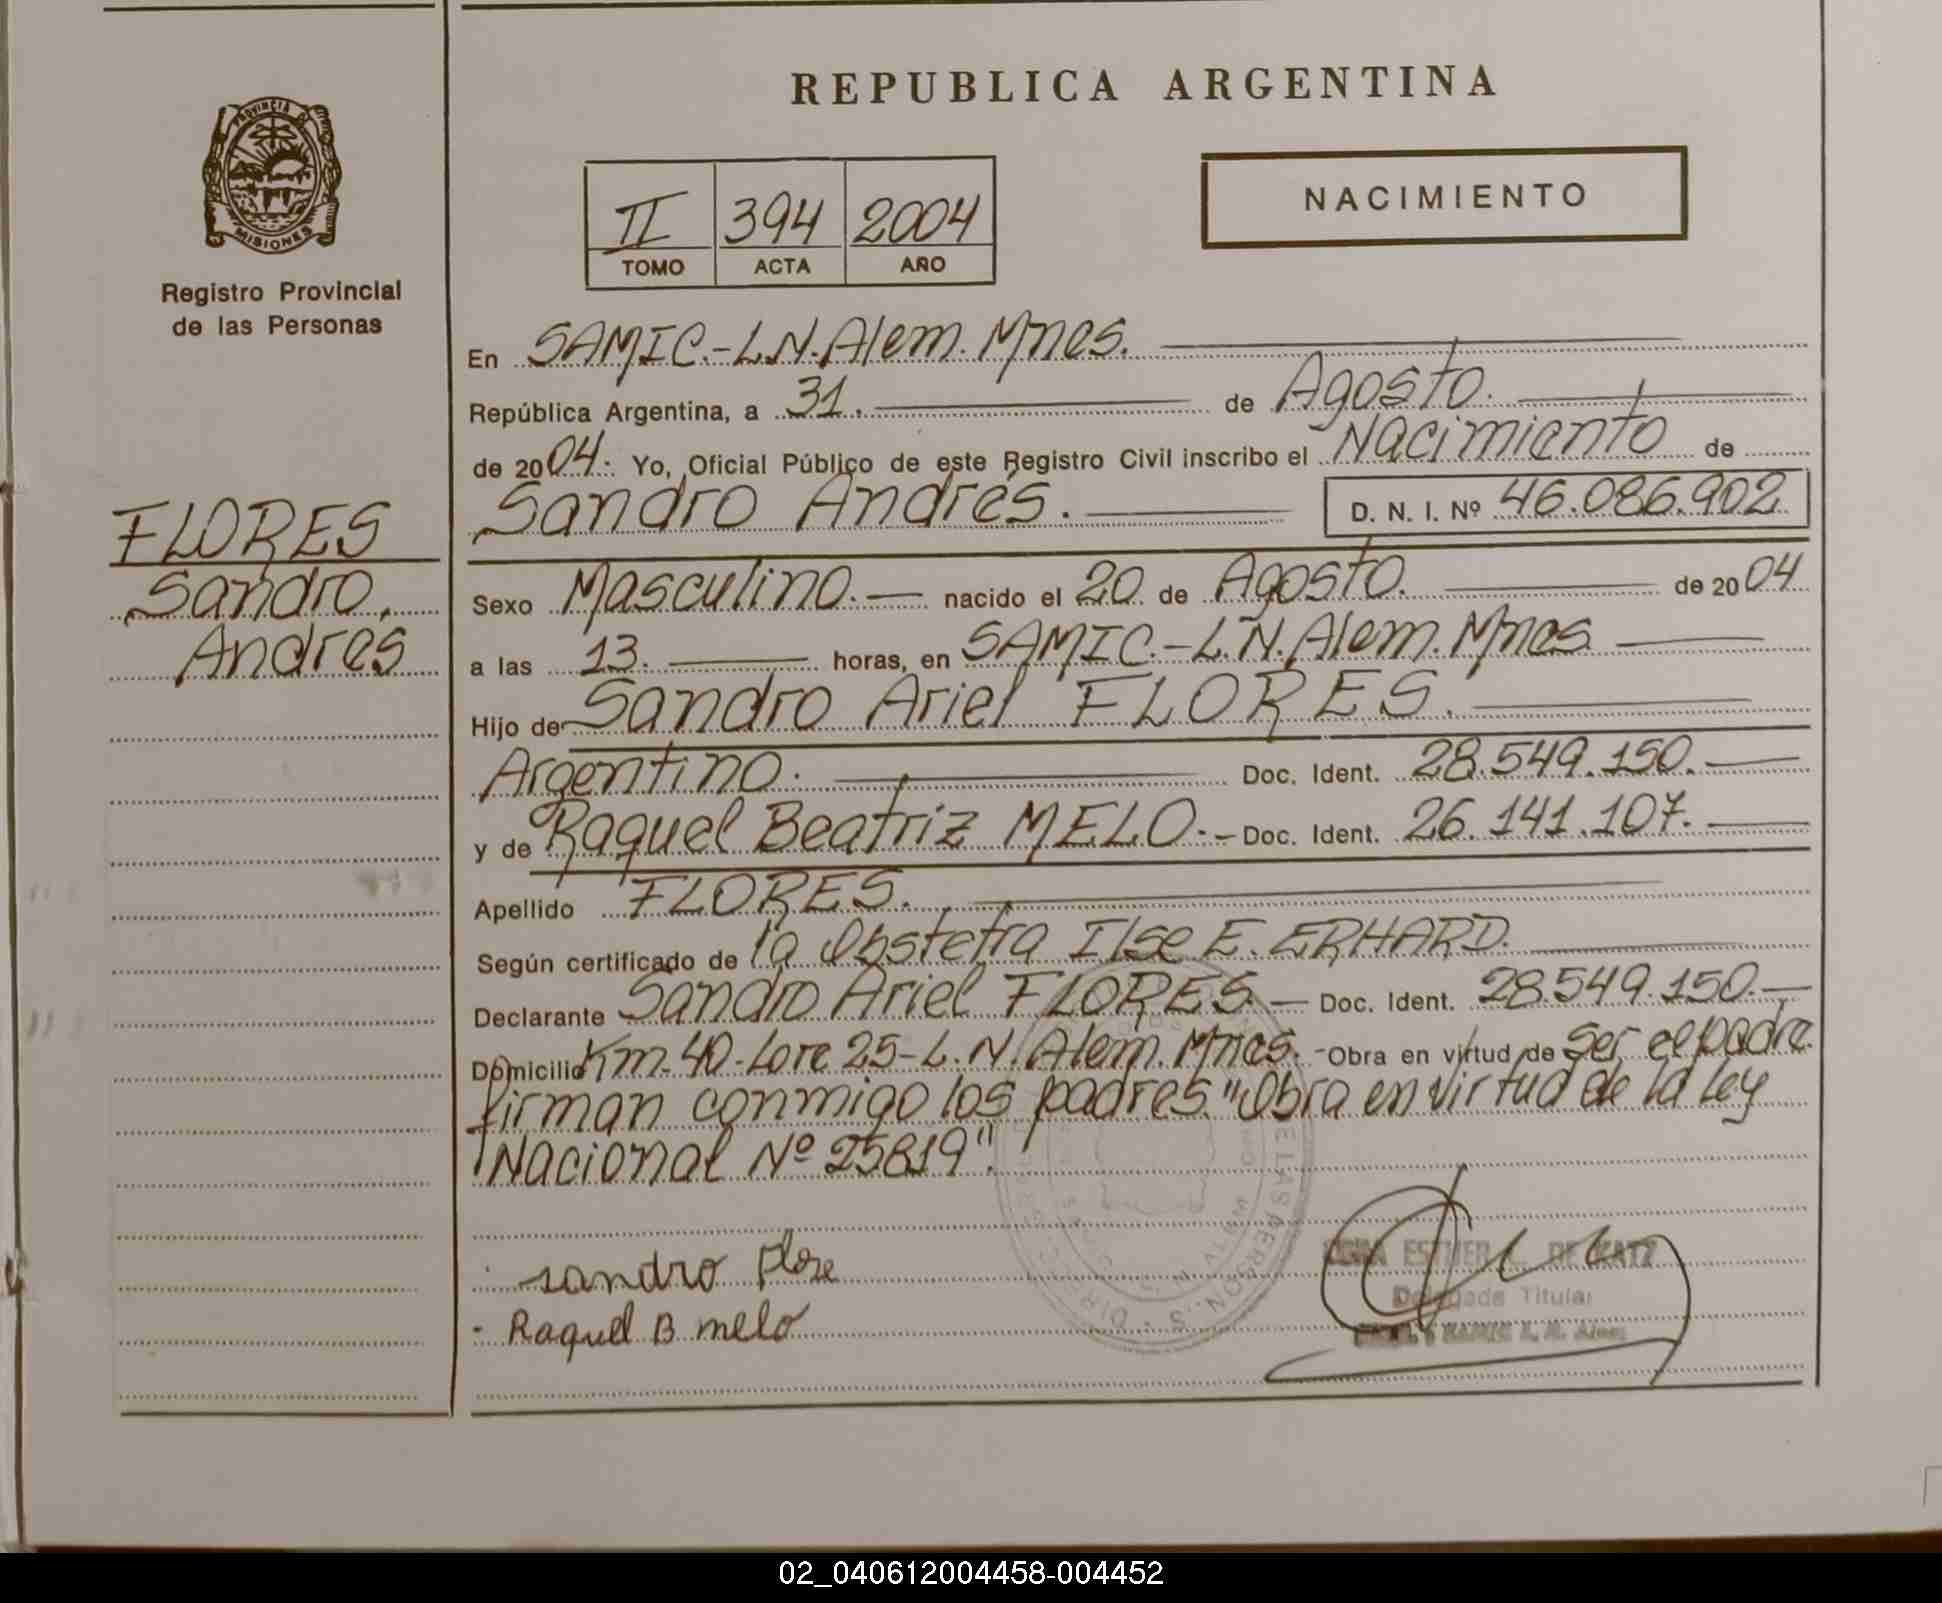 REPUBLICA ARGENTINA
PROVINCIA DE
MISIONES
Registro Provincial
de las Personas
II 394 2004
TOMO ACTA AÑO
NACIMIENTO
FLORES
Sandro
Andres
En SAMIC.-L.N.Alem.Mnes.
República Argentina, a 31. de Agosto.
de 2004. Yo, Oficial Público de este Registro Civil inscribo el Nacimiento de
Sandro Andrés. D. N. I. Nº 46.086.902
Sexo Masculino.- nacido el 20 de Agosto. de 2004
a las 13. horas, en SAMIC.-L.N.Alem.Mnes
Hijo de Sandro Ariel FLORES.
Argentino. Doc. Ident. 28.549.150.-
y de Raquel Beatriz MELO.- Doc. Ident. 26.141.107.-
Apellido FLORES.
Según certificado de la Obstetra Ilse E. ERHARD.
Declarante Sandro Ariel FLORES.- Doc. Ident. 28.549.150.-
Domicilio Km.40-Lote 25-L.N.Alem.Mnes.- Obra en virtud de Ser el padre.
firman conmigo los padres."Obra en virtud de la Ley
Nacional Nº 25819".
Sandro Flore
Raquel B melo
ESTHER DE KATZ
Delegada Titular
L. N. Alem
02_040612004458-004452